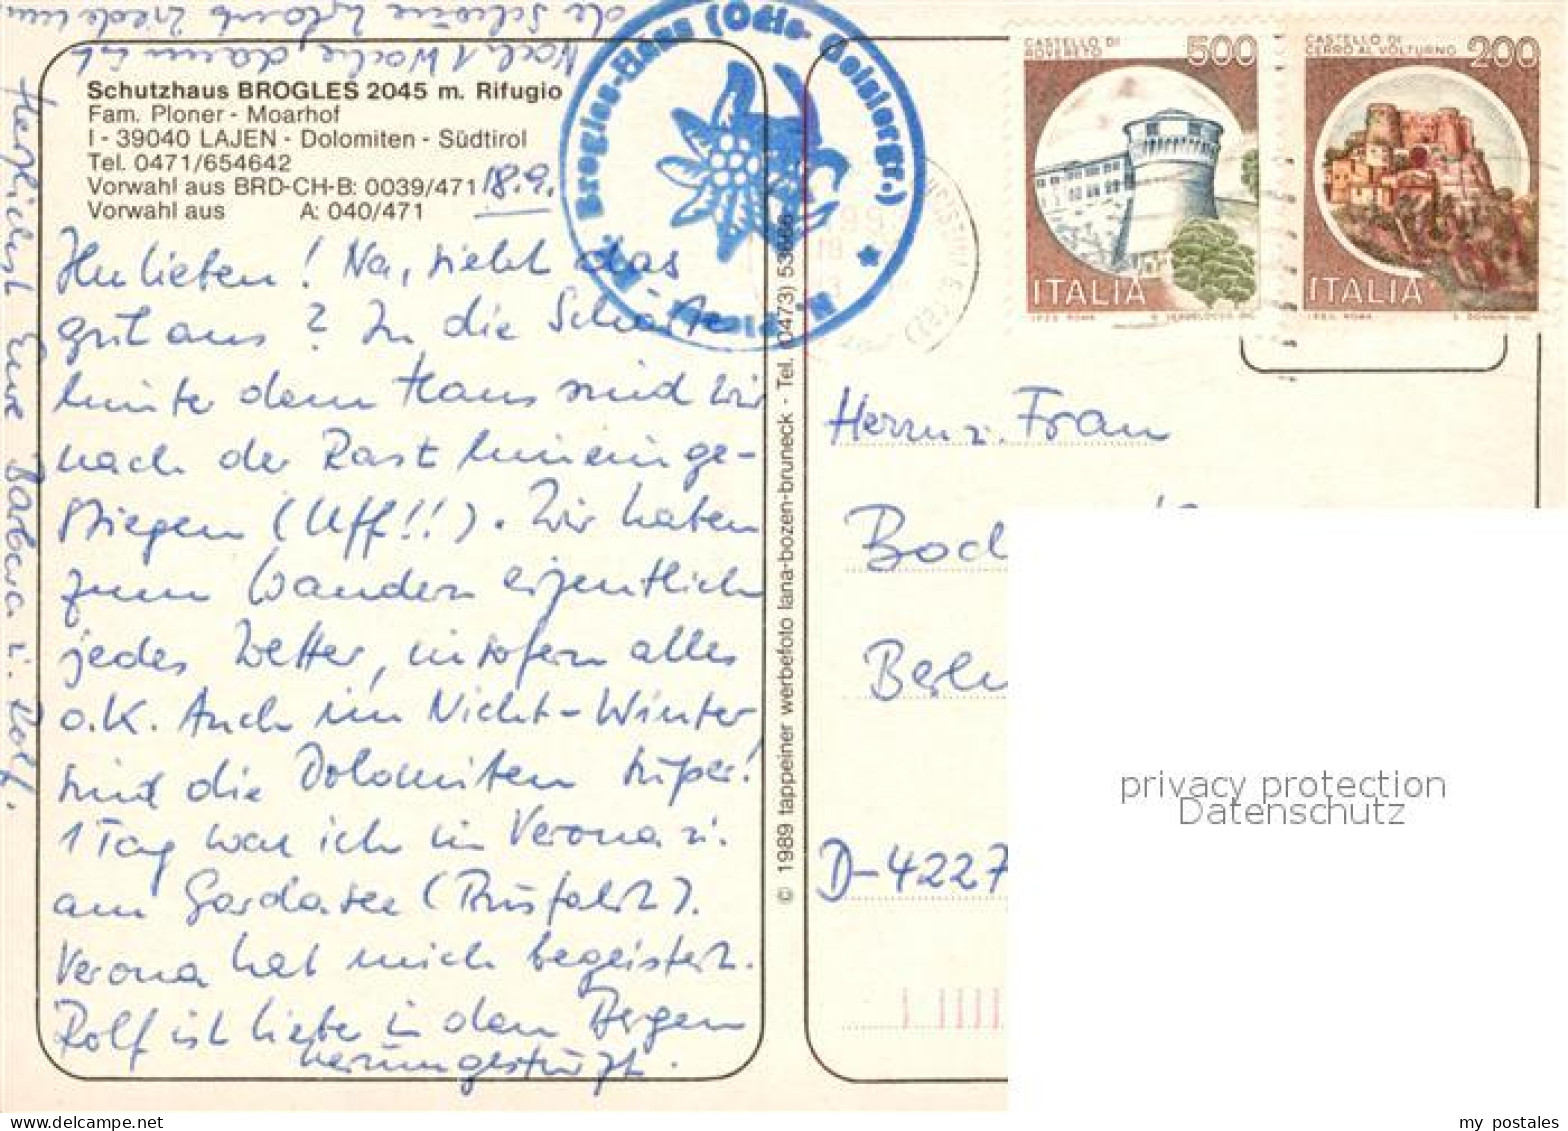 Schutzhaus BROGLES 2045 m. Rifugio
Fam. Ploner - Moarhof
I - 39040 LAJEN - Dolomiten - Südtirol
Tel. 0471/654642
Vorwahl aus BRD-CH-B: 0039/471
Vorwahl aus A: 040/471
18.9.
Ihr Lieben! Na, sieht das
gut aus? In die Scharte
hinter dem Haus sind wir
nach der Rast hineinge-
stiegen (Uff!!). Wir haben
zum Wandern eigentlich
jedes Wetter, insofern alles
o.K. Auch im Nicht-Winter
sind die Dolomiten super!
1 Tag war ich in Verona u.
am Gardasee (Busfahrt).
Verona hat mich begeistert.
Rolf ist lieber in den Bergen
herumgestürzt.
Nach 1 Woche dann ist
der schöne Urlaub wieder um
Herzlichst Eure Barbara u. Rolf.
Brogles-Haus (Odle- Geislergr.)
© 1989 tappeiner werbefoto lana-bozen-bruneck - Tel. (0473) 53
CASTELLO DI
ROVERETO
500
ITALIA
I.P.Z.S. ROMA
CASTELLO DI
CERRO AL VOLTURNO
200
ITALIA
I.P.Z.S. ROMA
Herrn u. Frau
Boc
Berl
D-4227
privacy protection
Datenschutz
my postales